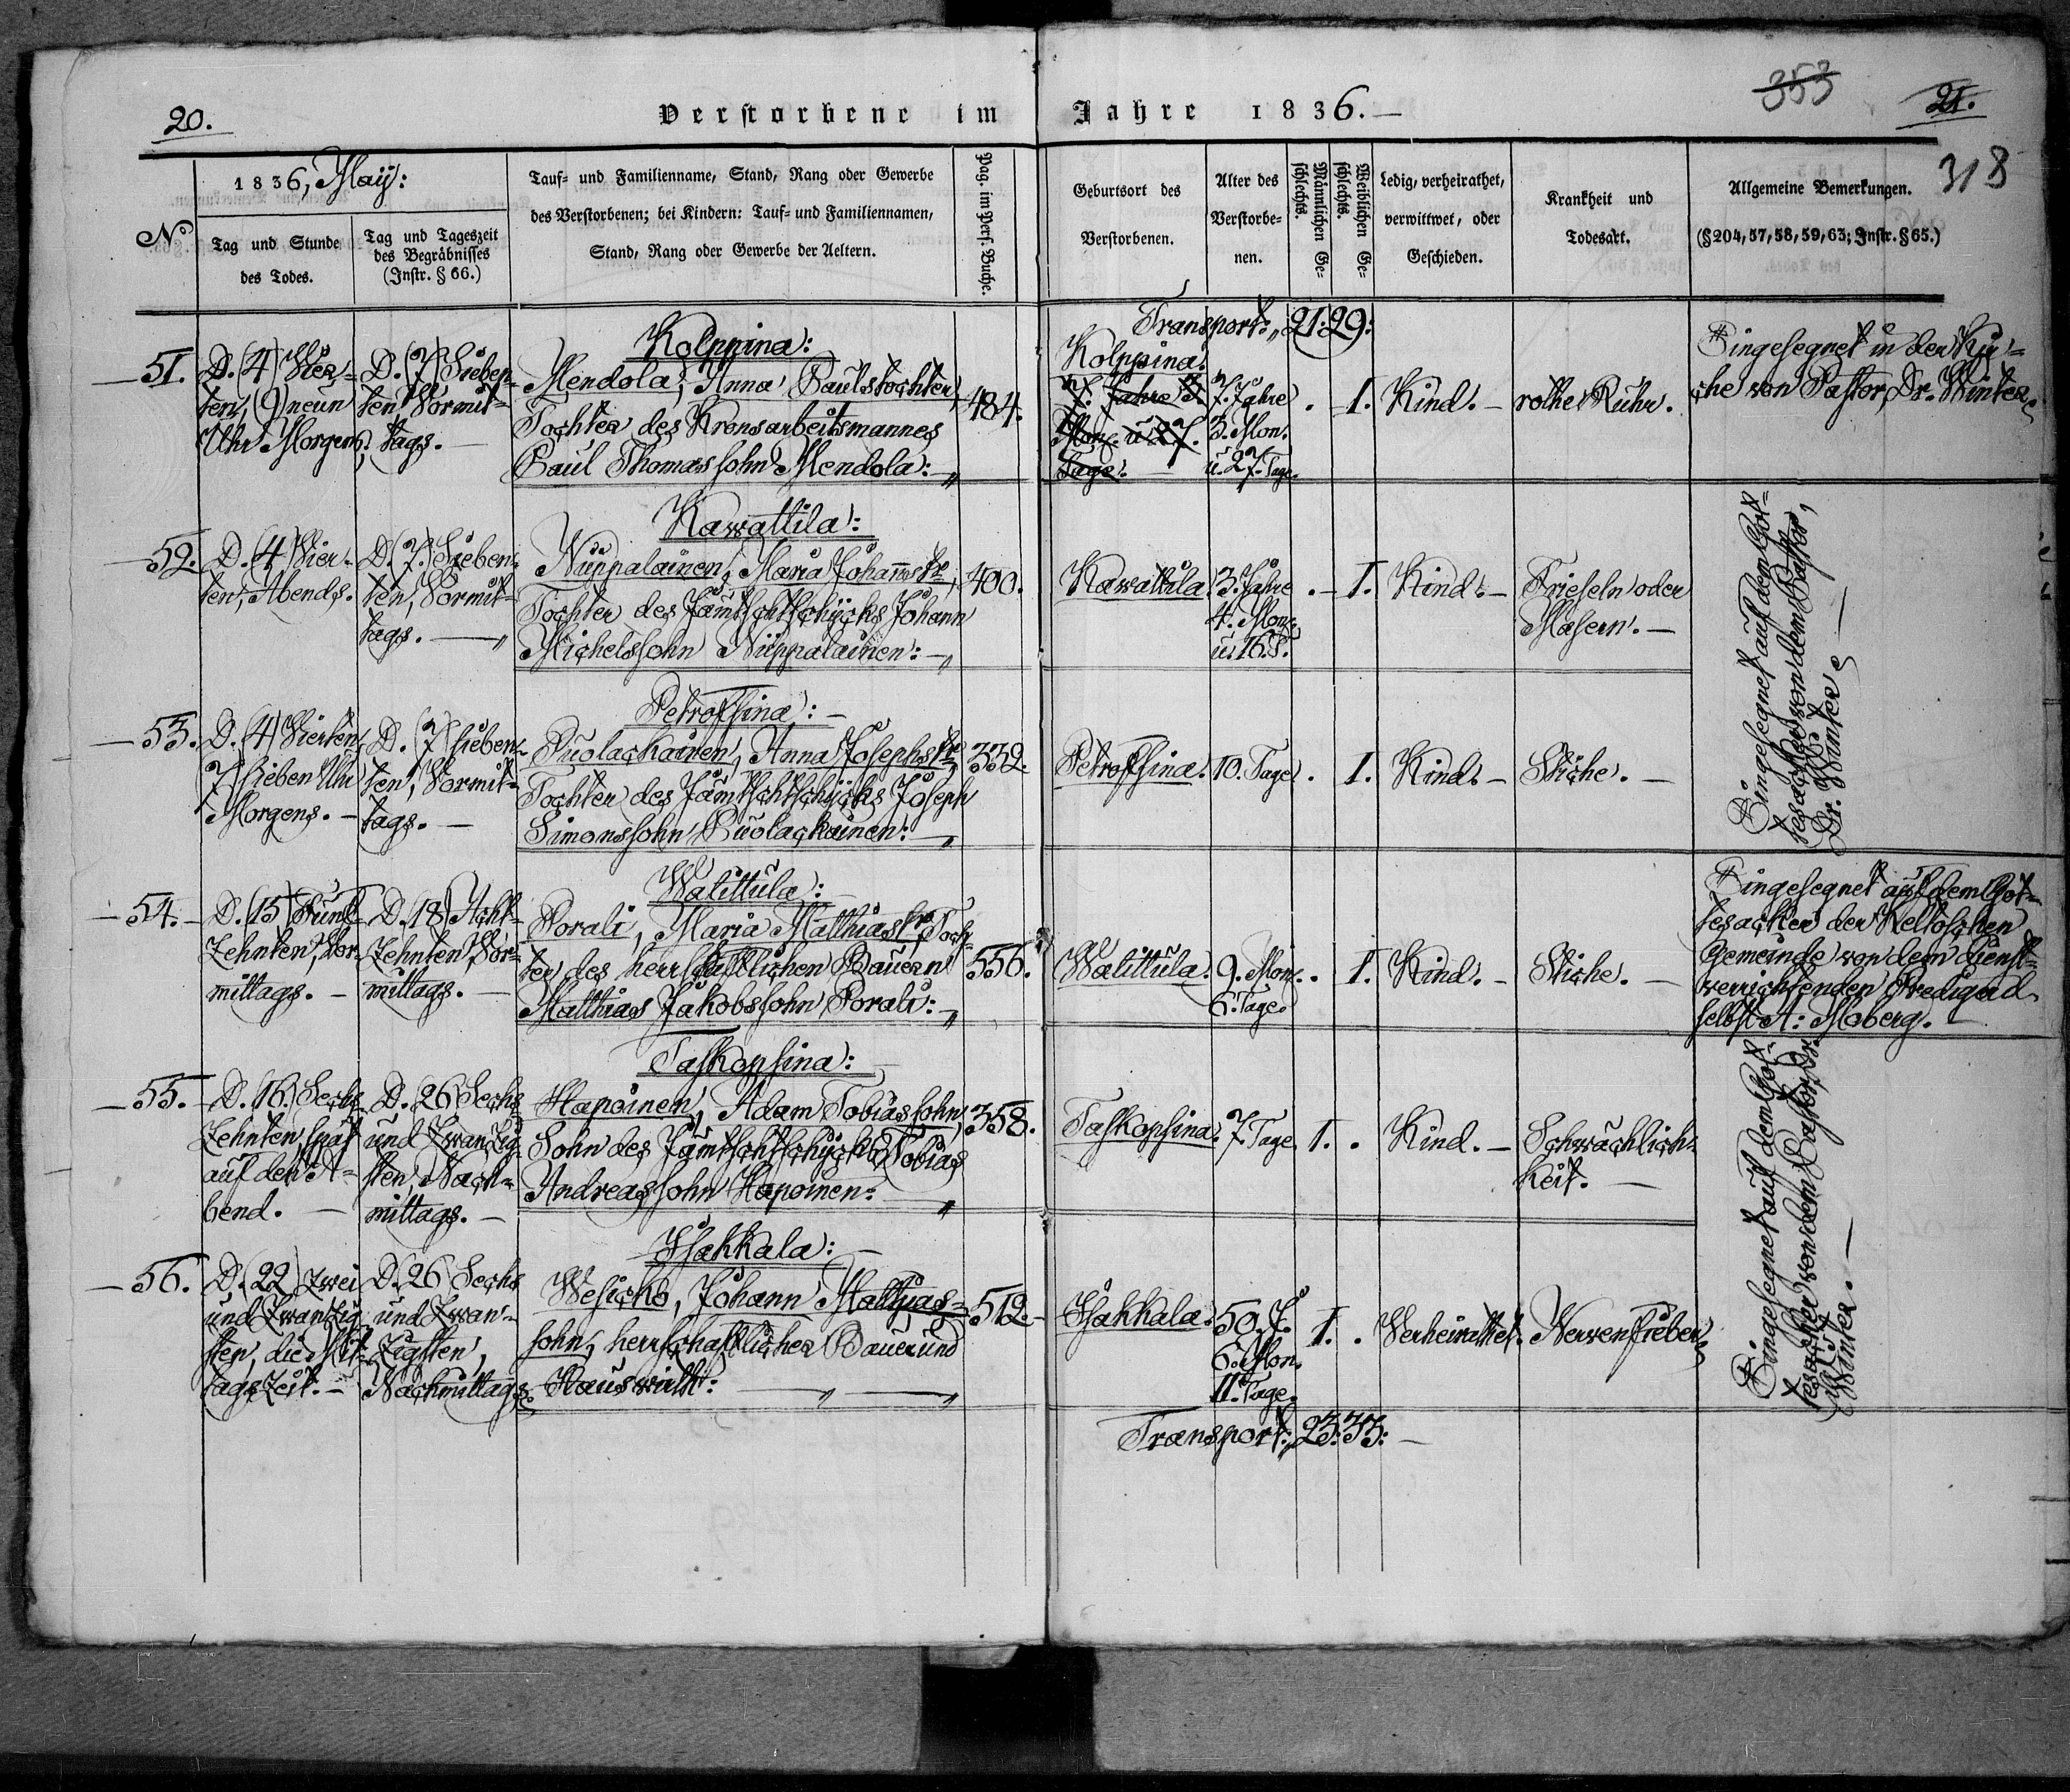 20.
Verstorbene im
Jahre 1836.
353
21.
318
1836, May:
No
Tag und Stunde
des Todes.
Tag und Tageszeit
des Begräbnisses
(Instr. § 66.)
Tauf- und Familienname, Stand, Rang oder Gewerbe
des Verstorbenen; bei Kindern: Tauf- und Familiennamen,
Stand, Rang oder Gewerbe der Aeltern.
Pag. im Pers. Buche.
Geburtsort des
Verstorbenen.
Alter des
Verstorbe-
nen.
Männlichen Ge-
schlechts.
Weiblichen Ge-
schlechts.
Ledig, verheirathet,
verwittwet, oder
Geschieden.
Krankheit und
Todesart.
Allgemeine Bemerkungen.
(§ 204, 57, 58, 59, 63; Instr. § 65.)
Transport: 21: 29:
51.
D. (4) Vier-
ten, (9) neun
Uhr Morgens.
D. (7) Sieben-
ten Vormit-
tags. —
Kolppina:
Mendola, Anna Paulstochter,
Tochter des Kronsarbeitsmannes
Paul Thomassohn Mendola: —
484.
Kolppina.
7. Jahre 3.
Mon. u 27.
Tage. —
7. Jahre
3. Mon.
u. 27. Tage.
. 1.
Kind. —
rothe Ruhr.
Eingesegnet in der Kir-
che von Pastor, Dr. Winter.
52.
D. (4) Vier-
ten, Abends.
D. (7.) Sieben-
ten, Vormit-
tags. —
Kawattila:
Nuppalainen, Maria Johannstr.,
Tochter des Jämtschtschicks Johann
Michelssohn Nuppalainen: —
400.
Kawattila.
3. Jahre
4. Mon.
u. 16. T.
. 1.
Kind. —
Frieseln oder
Masern. —
53.
D. (4) Vierten,
7) sieben Uhr
Morgens. —
D. (7) sieben-
ten, Vormit-
tags. —
Petrofsina: —
Puolackainen, Anna Josephstr.,
Tochter des Jämtschtschicks Joseph
Simonssohn Puolackainen: —
332.
Petrofsina.
10. Tage
. 1.
Kind. —
Stiche. —
Eingesegnet auf dem Got-
tesacker von dem Pastor,
Dr. Winter. —
54.
D. (15) Funf-
zehnten, Vor-
mittags. —
D. (18) Acht-
zehnten, Vor-
mittags. —
Walittula: —
Porali, Maria Matthiastr., Toch-
ter des herrschaftlichen Bauern
Matthias Jakobssohn Porali: —
556.
Walittula.
9. Mon.
6. Tage
. 1.
Kind. —
Stiche. —
Eingesegnet auf dem Got-
tesacker der Keltoschen
Gemeinde von dem dienst-
verrichtenden Prediger da
selbst A: Moberg.
55.
D. 16.) Sechs
zehnten, spät
auf den A-
bend. —
D. (26 Sechs
und zwanzig-
sten, Nach-
mittags. —
Taskopsina: —
Hapoinen, Adam Tobiassohn,
Sohn des Jämtschtschicks Tobias
Andreassohn Hapoinen: —
358.
Taskopsina.
7. Tage
1. .
Kind. —
Schwächlich-
keit. —
56.
D. (22) zwei
und zwanzig-
sten, die Mit-
tagszeit. —
D. 26 Sechs
und zwan-
zigsten,
Nachmittags.
Hakkala: —
Wesicko, Johann Matthias-
sohn, herrschaftlicher Bauer und
Hauswirth: —
512.
Hakkala.
50. J.
6. Mon.
11. Tage.
1. .
Verheirathet.
Nervenfieber.
Eingesegnet auf dem Got-
tesacker von dem Pastor, Dr.
Winter. —
Transport: 23: 33: —